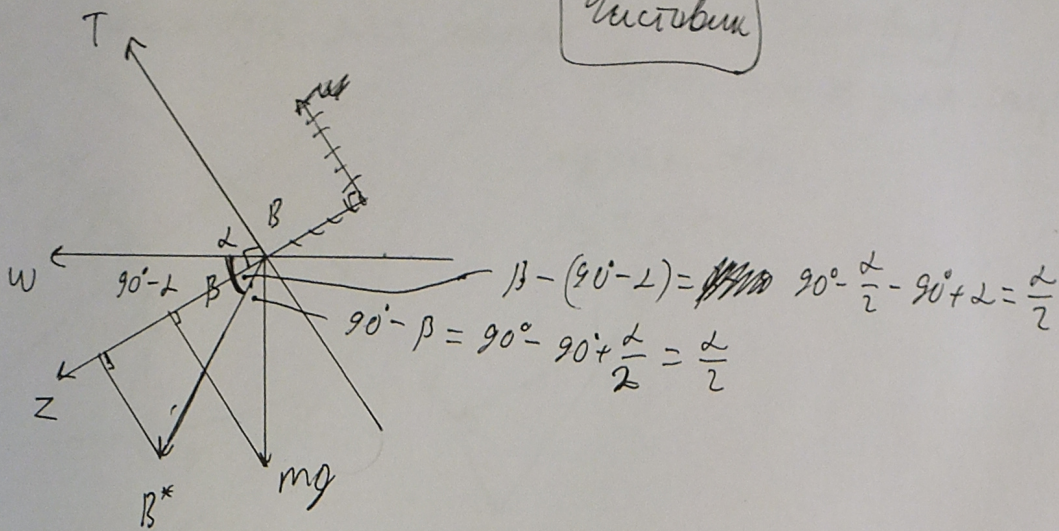 Чистовик
T
B
α
W
90°-α
β
β-(90°-α)= 90°-α/2-90°+α=α/2
90°-β=90°-90°+α/2=α/2
Z
B*
mg